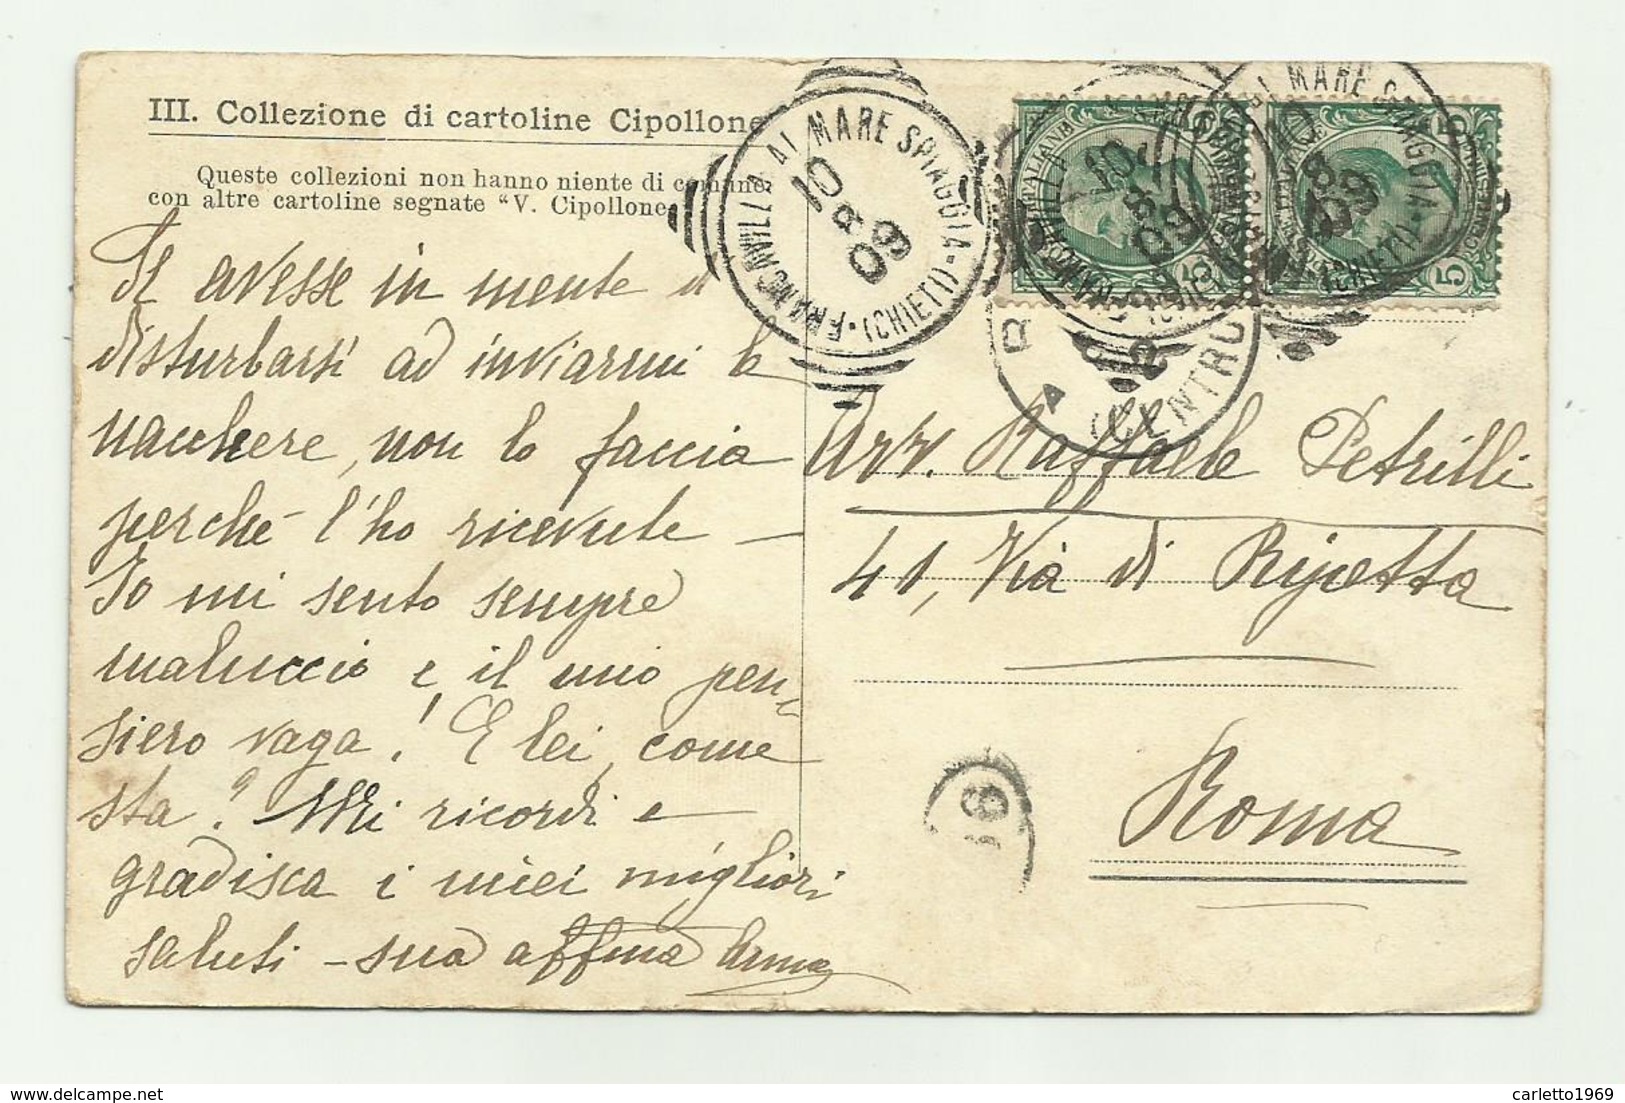 III. Collezione di cartoline Cipollone
Queste collezioni non hanno niente di comune
con altre cartoline segnate "V. Cipollone
Se avesse in mente di
disturbarsi ad inviarmi le
nacchere, non lo faccia
perché l'ho ricevute —
Io mi sento sempre
maluccio e il mio pen-
siero vaga! E lei, come
sta? Mi ricordi e
gradisca i miei migliori
saluti – sua affma Anna
FRANCAVILLA AL MARE SPIAGGIA · (CHIETI) ·
10 8 09
AL MARE SPIAGGIA · (CHIETI)
10 8 09
(CENTRO
5
5
Avv. Raffaele Petrilli
41, Via di Ripetta
Roma
19
carletto1969